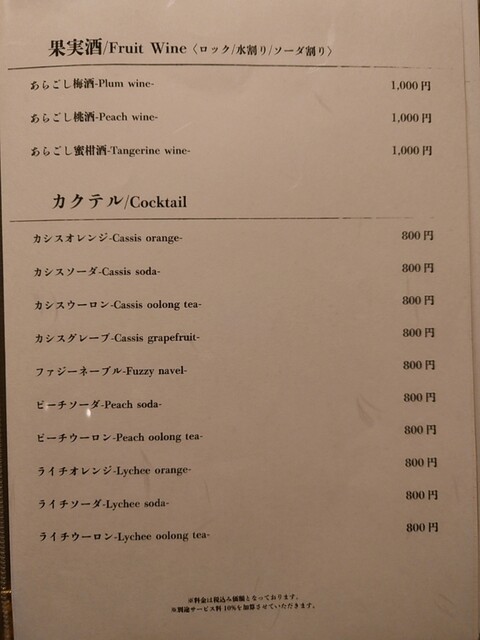 果実酒/Fruit Wine〈ロック/水割り/ソーダ割り〉
あらごし梅酒-Plum wine- 1,000円
あらごし桃酒-Peach wine- 1,000円
あらごし蜜柑酒-Tangerine wine- 1,000円
カクテル/Cocktail
カシスオレンジ-Cassis orange- 800円
カシスソーダ-Cassis soda- 800円
カシスウーロン-Cassis oolong tea- 800円
カシスグレープ-Cassis grapefruit- 800円
ファジーネーブル-Fuzzy navel- 800円
ピーチソーダ-Peach soda- 800円
ピーチウーロン-Peach oolong tea- 800円
ライチオレンジ-Lychee orange- 800円
ライチソーダ-Lychee soda- 800円
ライチウーロン-Lychee oolong tea- 800円
※料金は税込み価額となっております。
※別途サービス料10%を加算させていただきます。